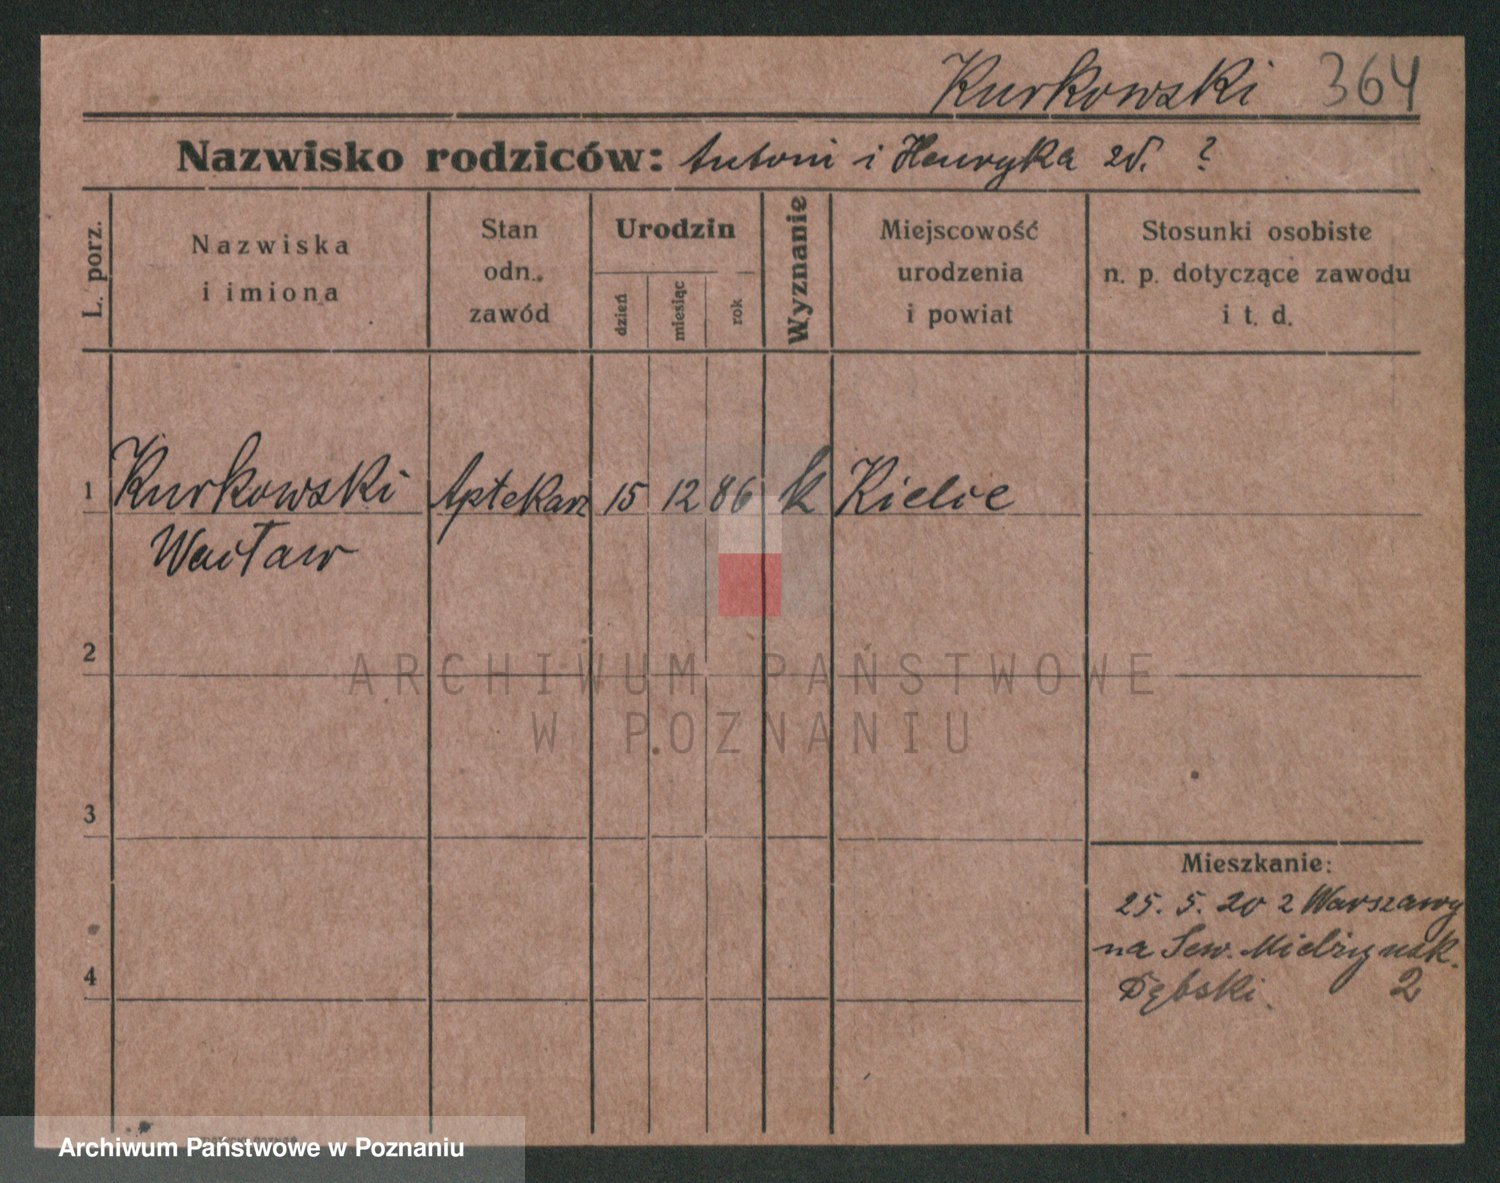 Kurkowski 364
Nazwisko rodziców: Antoni i Henryka zd. ?
L. porz.
Nazwiska
i imiona
Stan
odn.
zawód
Urodzin
dzień
miesiąc
rok
Wyznanie
Miejscowość
urodzenia
i powiat
Stosunki osobiste
n. p. dotyczące zawodu
i t. d.
1 Kurkowski Aptekarz 15 12 86 k Kielce
Wacław
2
ARCHIWUM PAŃSTWOWE
W POZNANIU
3
Mieszkanie:
25. 5. 20 z Warszawy
na Sew. Mielżyńsk.
Dębski. 2
4
Archiwum Państwowe w Poznaniu